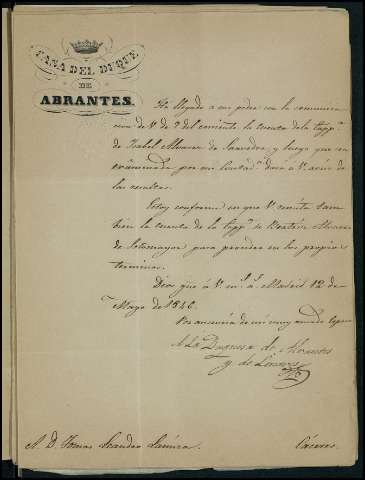 CASA DEL DUQUE
DE
ABRANTES.
Ha llegado a mi poder con la comunica
cion de V. de 7 del corriente la cuenta de la Capp.ª
de Isabel Alvarez de Saavedra, y luego que sea
examinada por mi Contad.ª daré á V. aviso de
las resultas.
Estoy conforme en que V. remita tam
bien la cuenta de la Capp.ª de Beatriz Alvarez
de Sotomayor para proceder en los propios
terminos.
Dios gue á V. m.s a.s Madrid 12 de
Mayo de 1846.
Por ausencia de mi muy amado Esposo
La Duquesa de Abrantes
y de Linares
A D. Tomas Leandro
Cáceres.